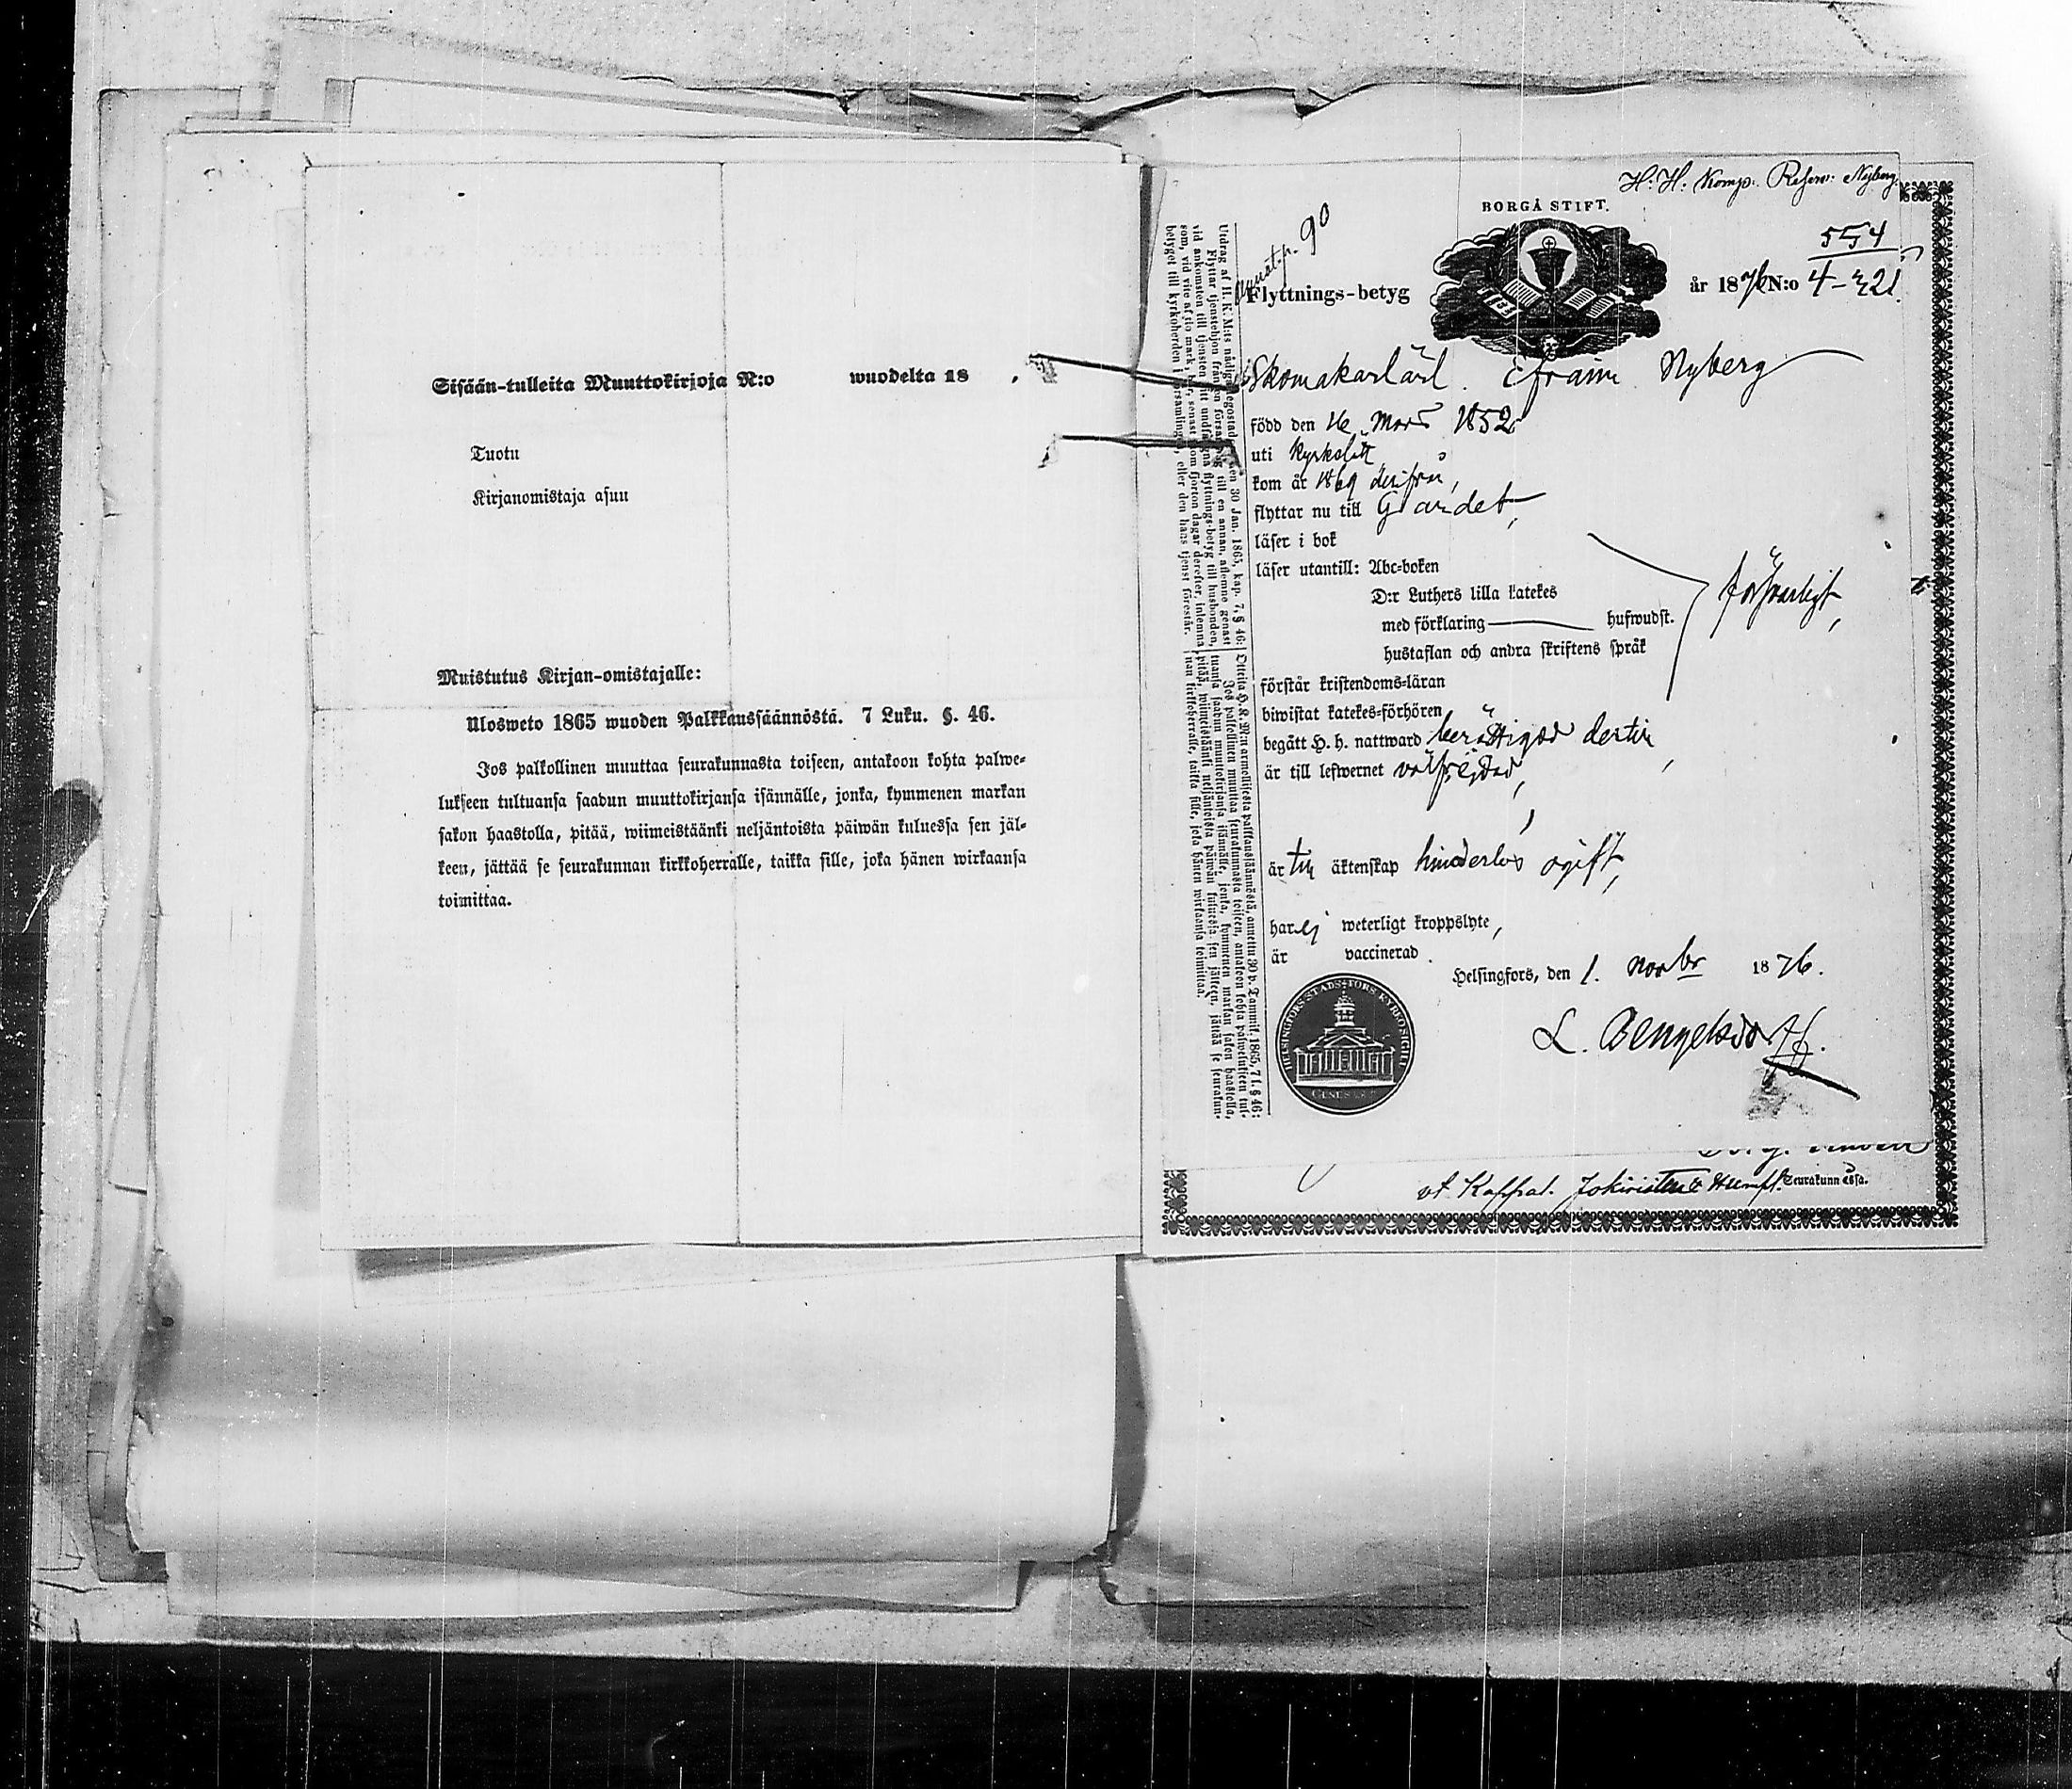 Sisään-tulleita Muuttokirjoja N:o wuodelta 18 .
Tuotu
Kirjanomistaja asuu
Muistutus Kirjan-omistajalle:
Ulosweto 1865 wuoden Palkkaussäännöstä. 7 Luku. §. 46.
Jos palkollinen muuttaa seurakunnasta toiseen, antakoon kohta palwe-
lukseen tultuansa saadun muuttokirjansa isännälle, jonka, kymmenen markan
sakon haastolla, pitää, wiimeistäänki neljäntoista päiwän kuluessa sen jäl-
keen, jättää se seurakunnan kirkkoherralle, taikka sille, joka hänen wirkaansa
toimittaa.
H. H. Komp. Reserv. Nyberg.
BORGÅ STIFT.
90
554
Flyttnings-betyg år 1876 N:o 4-321.
Skomakarlärl. Efraim Nyberg
född den 16 Mars 1852
uti Kyrkslätt
kom år 1869 derifrån,
flyttar nu till Gardet,
läser i bok
läser utantill: Abc-boken
D:r Luthers lilla katekes
med förklaring hufwudst.
hustaflan och andra skriftens språk
försvarligt,
förstår kristendoms-läran
biwistat katekes-förhören
begått H. h. nattward berättigad dertill,
är till lefwernet välfrejdad,
är till äktenskap hinderlös ogift,
har ej weterligt kroppslyte,
är vaccinerad.
Helsingfors, den 1. novbr 1876.
L. Bengelsdorff.
HELSINGFORS STADS KYRKO SIGILL
Utdrag af H. K. M:ts nådiga legostadga den 30 Jan. 1865, kap. 7, § 46:
Flyttar tjenstehjon från en församling till en annan, aflemne genast
vid ankomsten till tjensten sitt undfångna flyttnings-betyg till husbonden,
som, vid vite af tio mark, bör, senast inom fjorton dagar derefter, inlemna
betyget till kyrkoherden i församlingen, eller den hans tjenst förestår.
Otteita H. K. M:n armollisesta palkkaussäännöstä, annettu 30 p. Tammik. 1865, 7 l. § 46:
Jos palkollinen muuttaa seurakunnasta toiseen, antakoon kohta palwelukseen tul-
tuansa saadun muuttokirjansa isännälle, jonka, kymmenen markan sakon haastolla,
pitää, wiimeistäänki neljäntoista päiwän kuluessa sen jälkeen, jättää se seurakun-
nan kirkkoherralle, taikka sille, joka hänen wirkaansa toimittaa.
vt Kappal. Seurakunnassa.